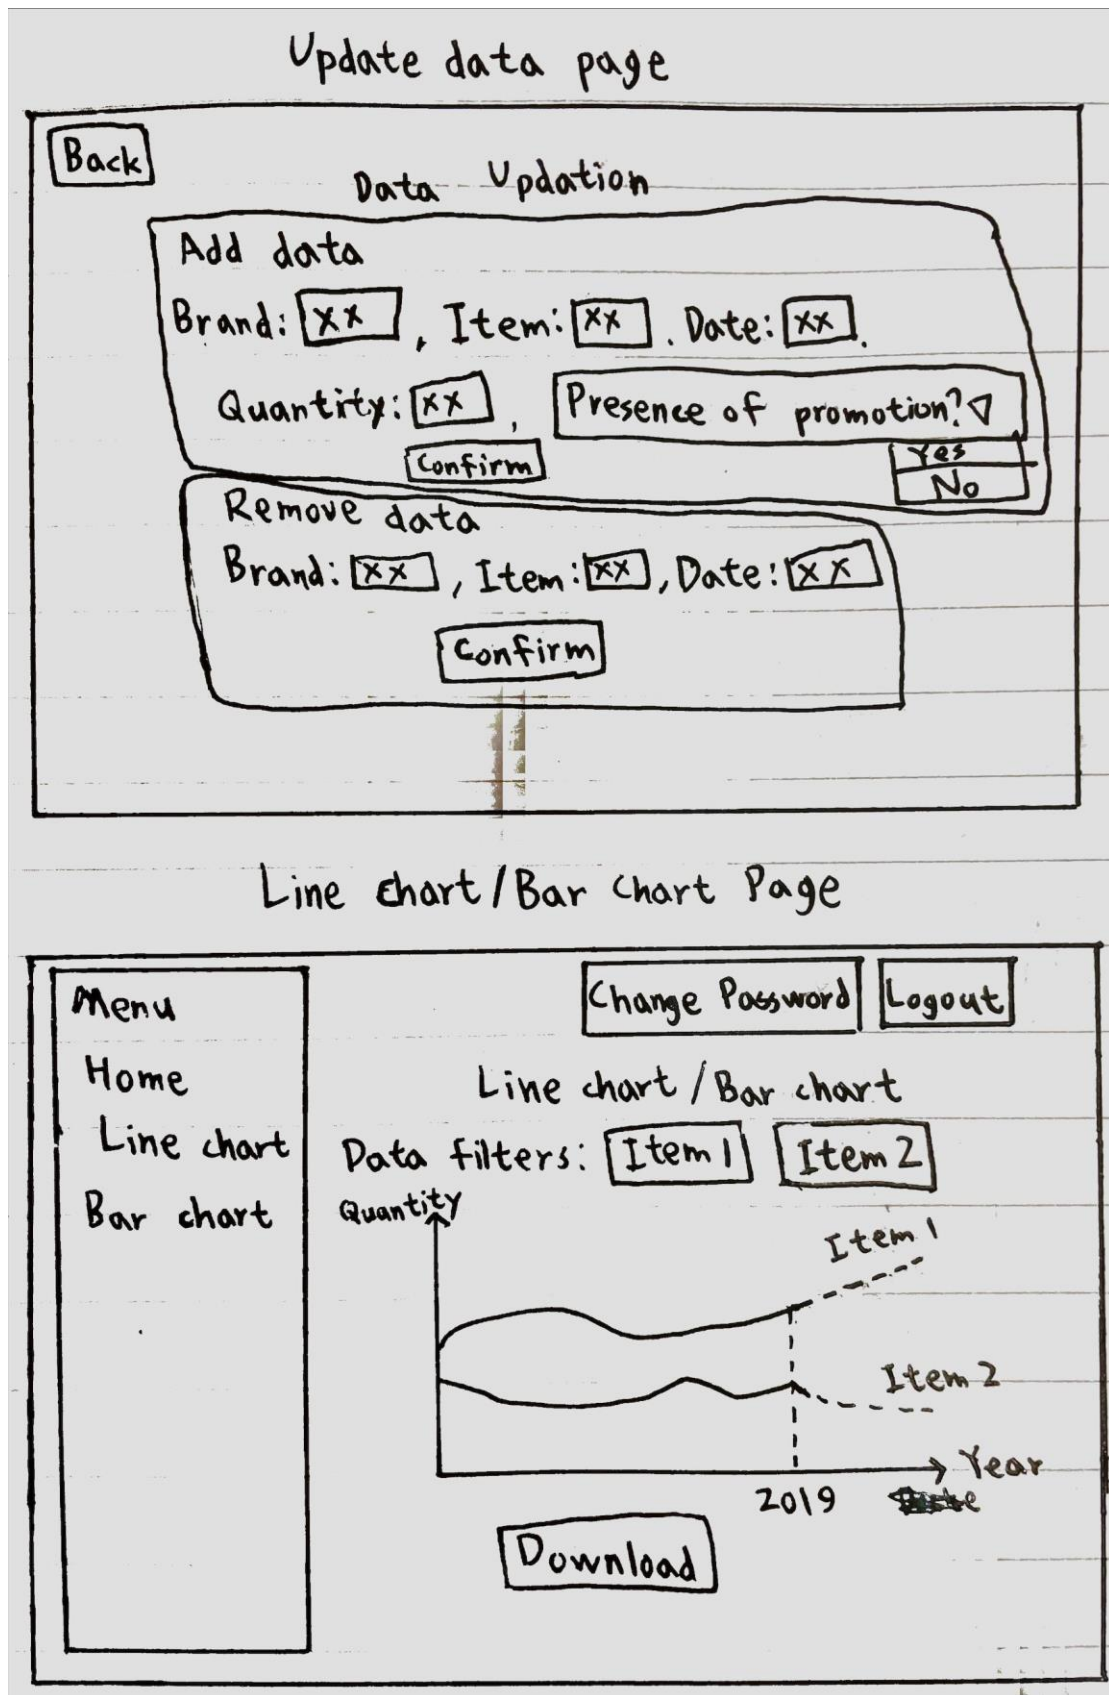 Update data page
Back
Data Updation
Add data
Brand: xx, Item: xx. Date: xx.
Quantity: xx, Presence of promotion?
Confirm
Yes
No
Remove data
Brand: xx, Item: xx, Date: xx
Confirm
Line chart/Bar chart Page
Menu
Home
Line chart
Bar chart
Change Password
Logout
Line chart / Bar chart
Data filters: Item 1 Item 2
Quantity
Item 1
Item 2
Year
2019
Download